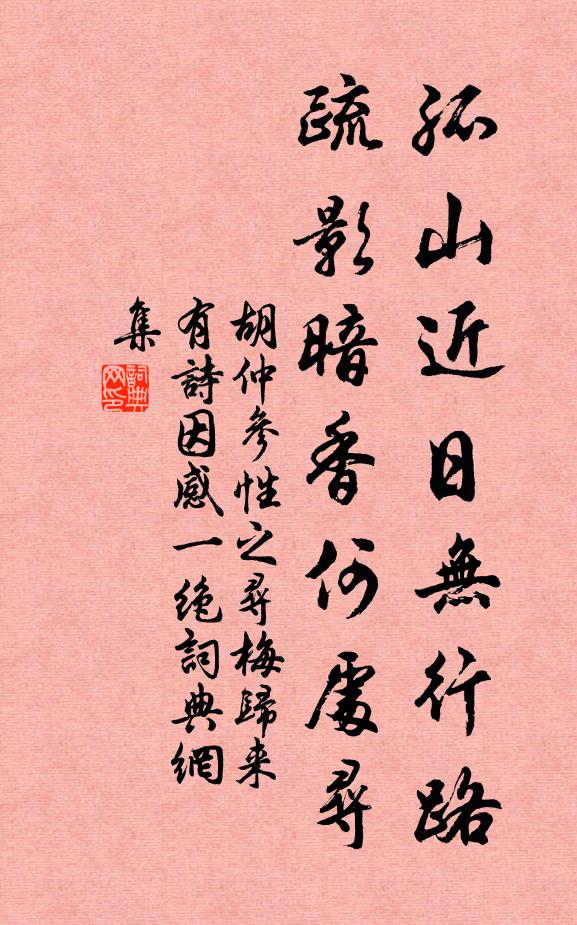 孤山近日無行路
疏影暗香何處尋
胡仲參性之尋梅歸来
有詩因感一絶詞典網
集
詞典
网印